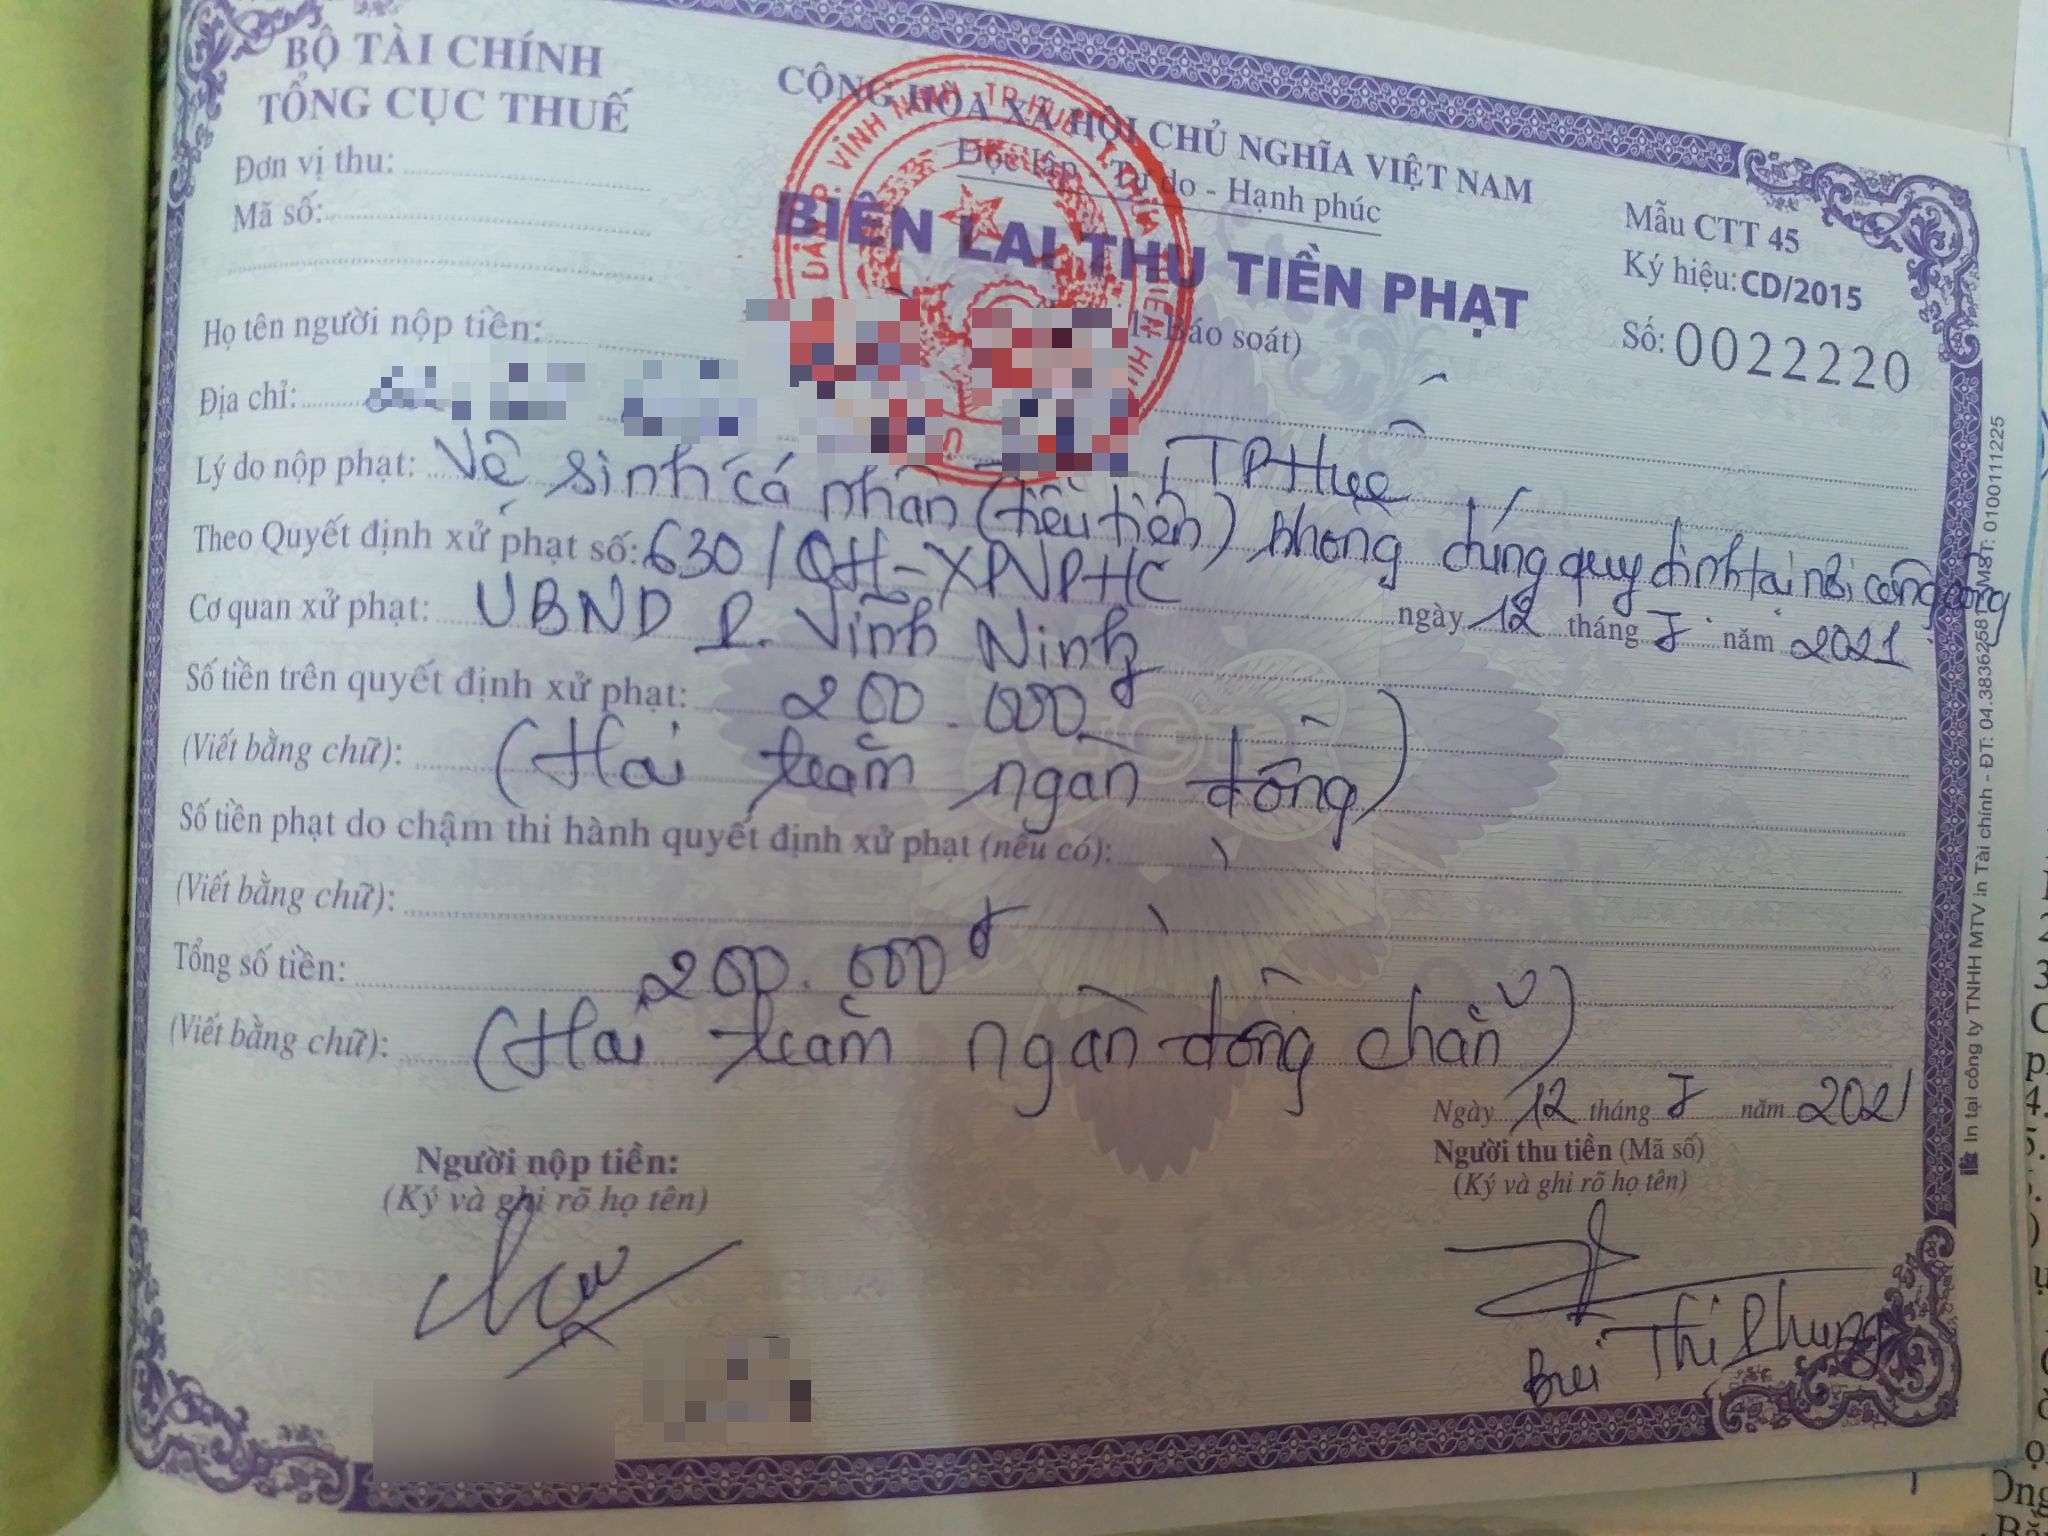 BỘ TÀI CHÍNH
TỔNG CỤC THUẾ
Đơn vị thu:
Mã số:
CỘNG HÒA XÃ HỘI CHỦ NGHĨA VIỆT NAM
Độc lập - Tự do - Hạnh phúc
BIÊN LAI THU TIỀN PHẠT
1: Báo soát)
Mẫu CTT 45
Ký hiệu: CD/2015
Số: 0022220
Họ tên người nộp tiền:
Địa chỉ: TP Huế
Lý do nộp phạt: Vệ sinh cá nhân (tiểu tiện) không đúng quy định tại nơi công cộng
Theo Quyết định xử phạt số: 630/QĐ-XPVPHC
ngày 12 tháng 5 năm 2021
Cơ quan xử phạt: UBND P. Vĩnh Ninh
Số tiền trên quyết định xử phạt: 200.000đ
(Viết bằng chữ): (Hai trăm ngàn đồng)
Số tiền phạt do chậm thi hành quyết định xử phạt (nếu có):
(Viết bằng chữ):
Tổng số tiền: 200.000đ
(Viết bằng chữ): (Hai trăm ngàn đồng chẵn)
Ngày 12 tháng 5 năm 2021
Người nộp tiền:
(Ký và ghi rõ họ tên)
Người thu tiền (Mã số)
(Ký và ghi rõ họ tên)
Bùi Thị Phung
In tại công ty TNHH MTV in Tài chính - ĐT: 04.3836258 MST: 0100111225